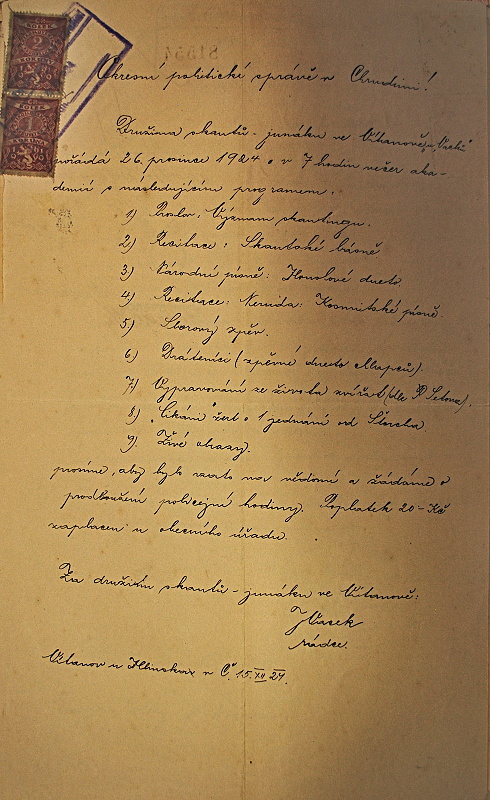 Okresní politické správě v Chrudimi!
Družina skautů-junáků ve Vítanově
pořádá 26. prosince 1924 o v 7 hodin večer aka-
demii s následujícím programem.
1) Proslov: Význam skautingu.
2) Recitace: Skautské básně
3) Národní písně: Houslové dueto.
4) Recitace: Neruda: Kosmické písně.
5) Sborový zpěv.
6) Dráteníci (zpěvné dueto chlapců).
7) Vypravování ze života zvířat (dle Setona).
8) "Cikáni" žert o 1 jednání od Štorcha
9. Živé obrazy.
prosíme, aby bylo vzato na vědomí a žádáme o
prodloužení policejní hodiny. Poplatek 20-Kč
zaplacen u obecního úřadu.
Za družinu skautů-junáků ve Vítanově:
rádce.
Vítanov u Hlinska v Č. 15.XII 24.